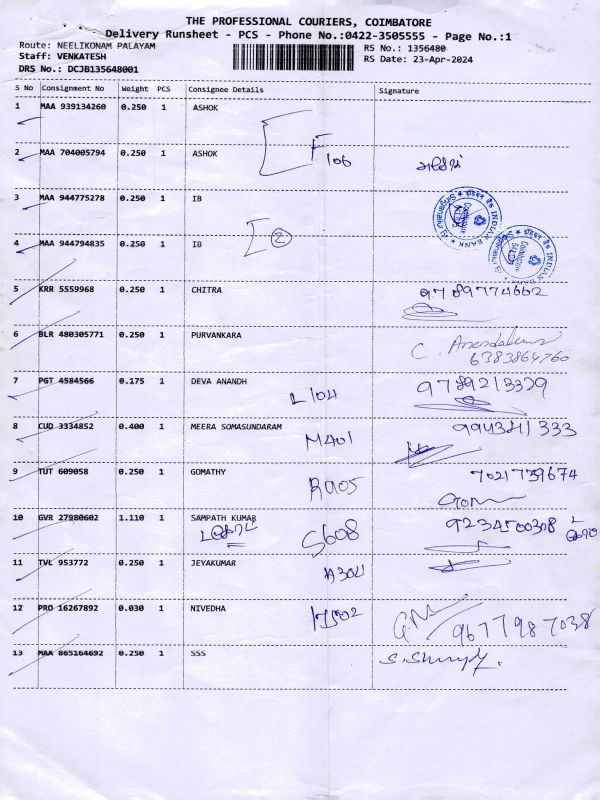 THE PROFESSIONAL COURIERS, COIMBATORE
Delivery Runsheet - PCS - Phone No.:0422-3505555 - Page No.:1
Route: NEELIKONAM PALAYAM
RS No.: 1356480
Staff: VENKATESH
RS Date: 23-Apr-2024
DRS No.: DCJB135648001
S No Consignment No Weight PCS Consignee Details Signature
1 MAA 939134260 0.250 1 ASHOK
F 106
2 MAA 704005794 0.250 1 ASHOK
3 MAA 944775278 0.250 1 IB
INDIAN BANK
2
4 MAA 944794835 0.250 1 IB
INDIAN BANK
5 KRR 5559968 0.250 1 CHITRA 9789774662
6 BLR 480305771 0.250 1 PURVANKARA
C.
6383864760
7 PGT 4584566 0.175 1 DEVA ANANDH 9789213329
L104
8 CUD 3334852 0.400 1 MEERA SOMASUNDARAM 994341333
M401
9 TUT 609058 0.250 1 GOMATHY 7021739674
R905
10 GVR 27980602 1.110 1 SAMPATH KUMAR 9234500308
S608
11 TVL 953772 0.250 1 JEYAKUMAR
A304
12 PRO 16267892 0.030 1 NIVEDHA
9677987038
13 MAA 865164692 0.250 1 SSS